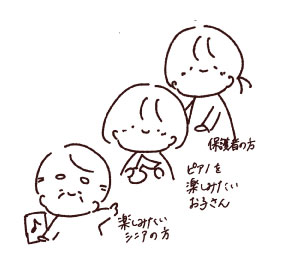 保護者の方
ピアノを
楽しみたい
お子さん
楽しみたい
シニアの方